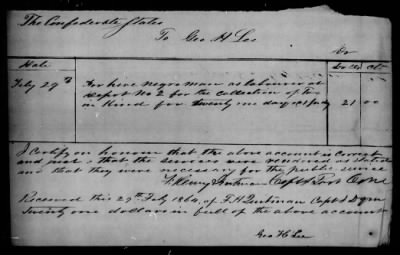 The Confederate States
To Geo H Lee
Dr
Date
Feby 29th For hire negro man as labourer at
Depot No 2 for the collection of Tax
in Kind for twenty one days 21 00
I Certify on honour that the above account is Correct
and just & that the services were rendered as stated
and that they were necessary for the public service
Henry
Received this 29th Feby 1864 of Capt
Twenty one dollars in full of the above account
Geo H Lee